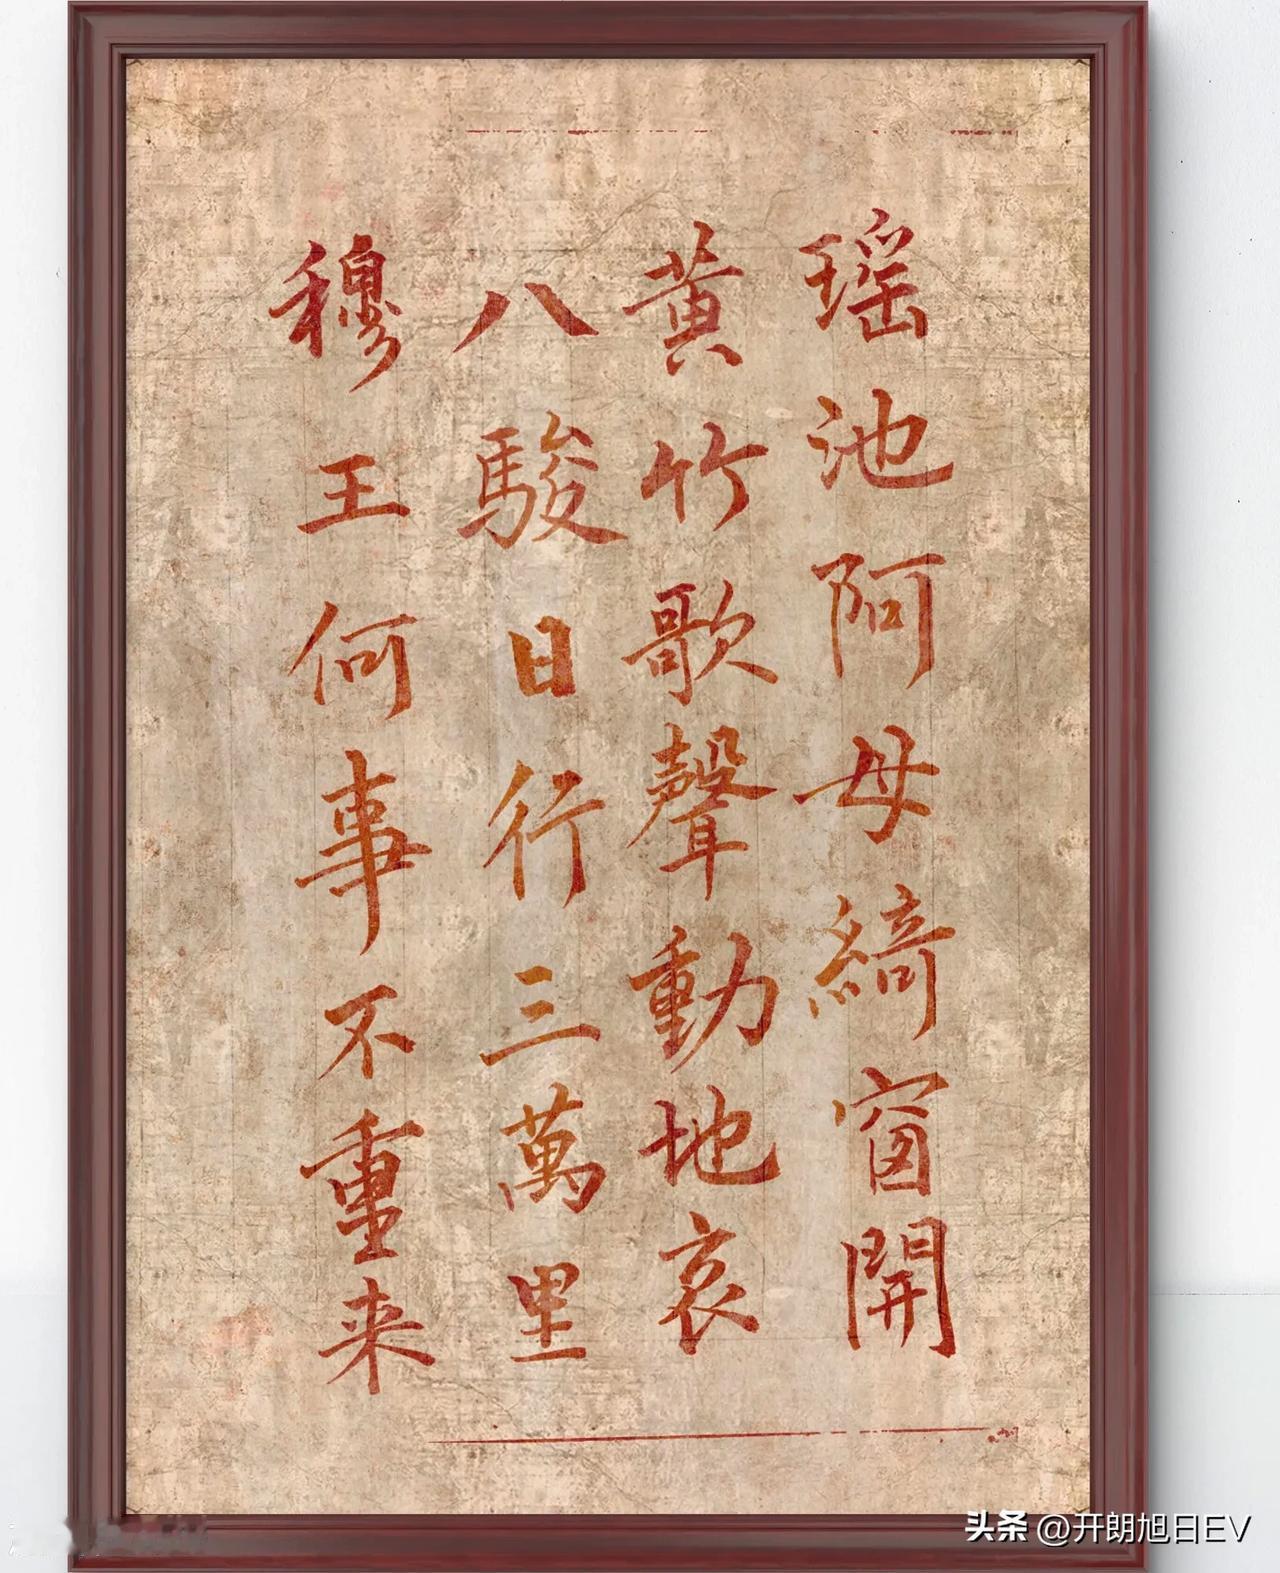 瑶池阿母綺窗開
黄竹歌聲動地哀
八駿日行三萬里
穆王何事不重来
头条 @开朗旭日EV